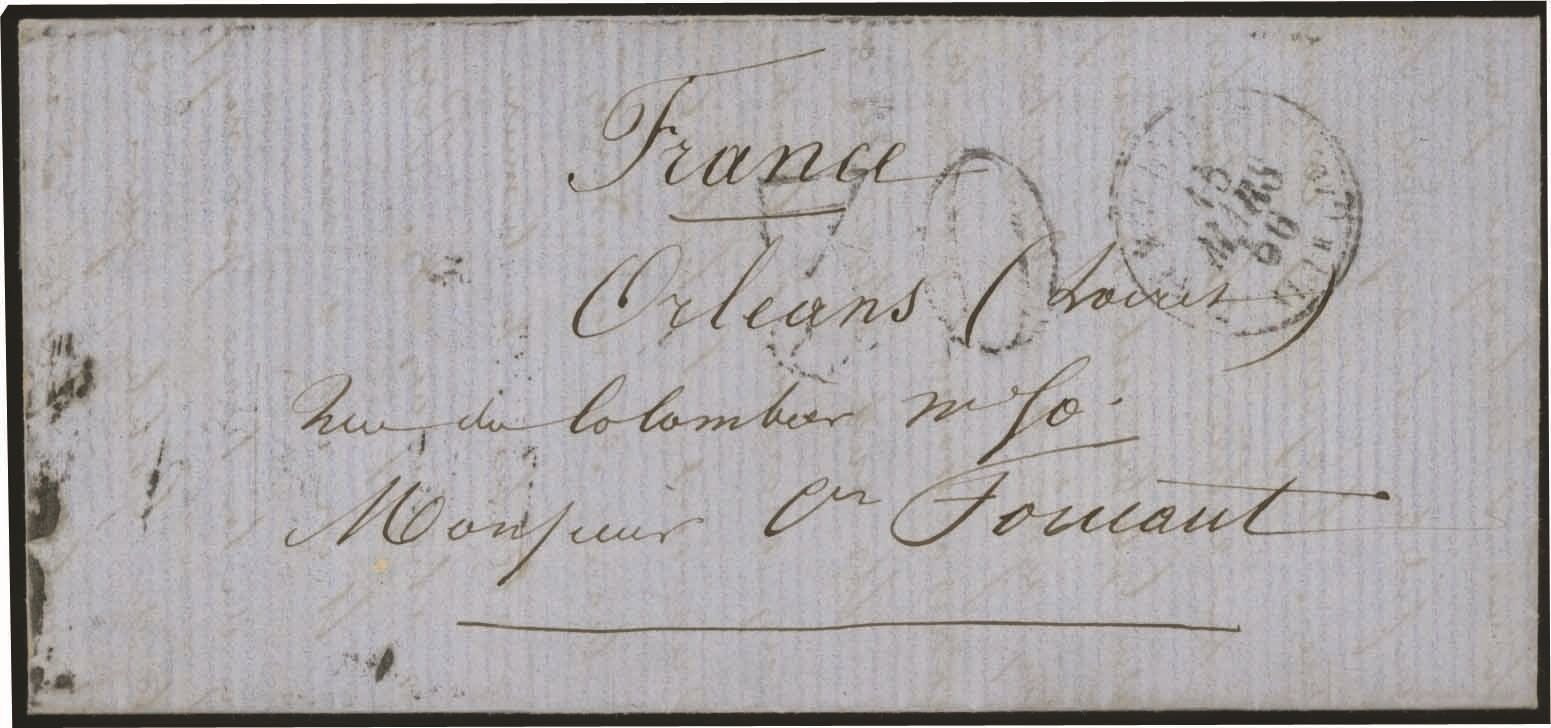 France
Orleans (Loiret)
Rue du Colombier n° 50.
Monsieur Foucaut
18
MARS
60